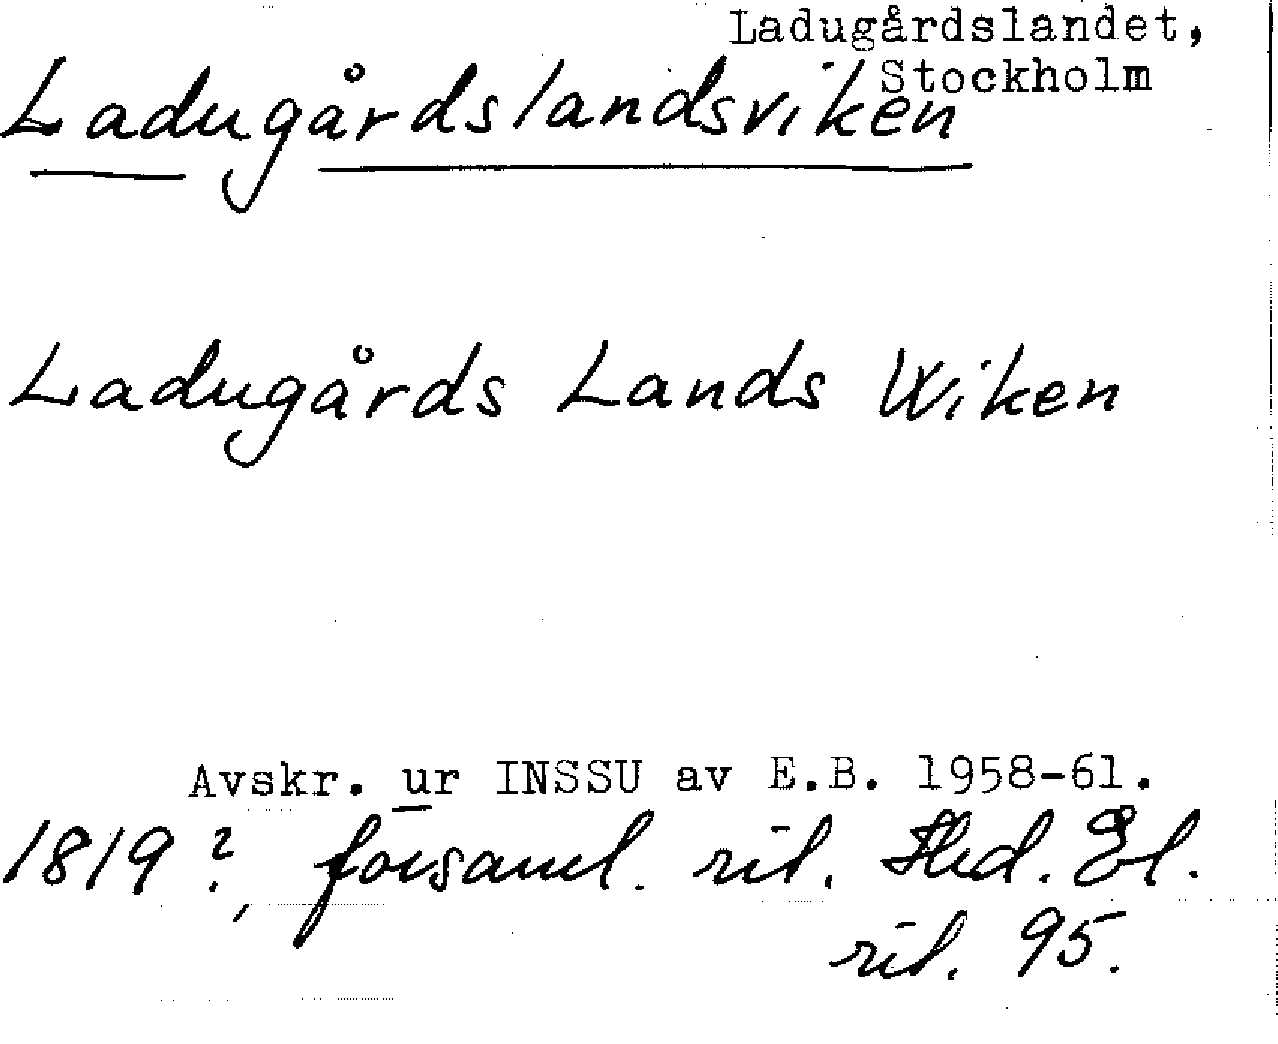 Ladugårdslandet,
Stockholm
Ladugårdslandsviken
Ladugårds Lands Wiken
Avskr. ur INSSU av E.B. 1958-61.
1819?, församl. rit. Hed. El.
rit. 95.